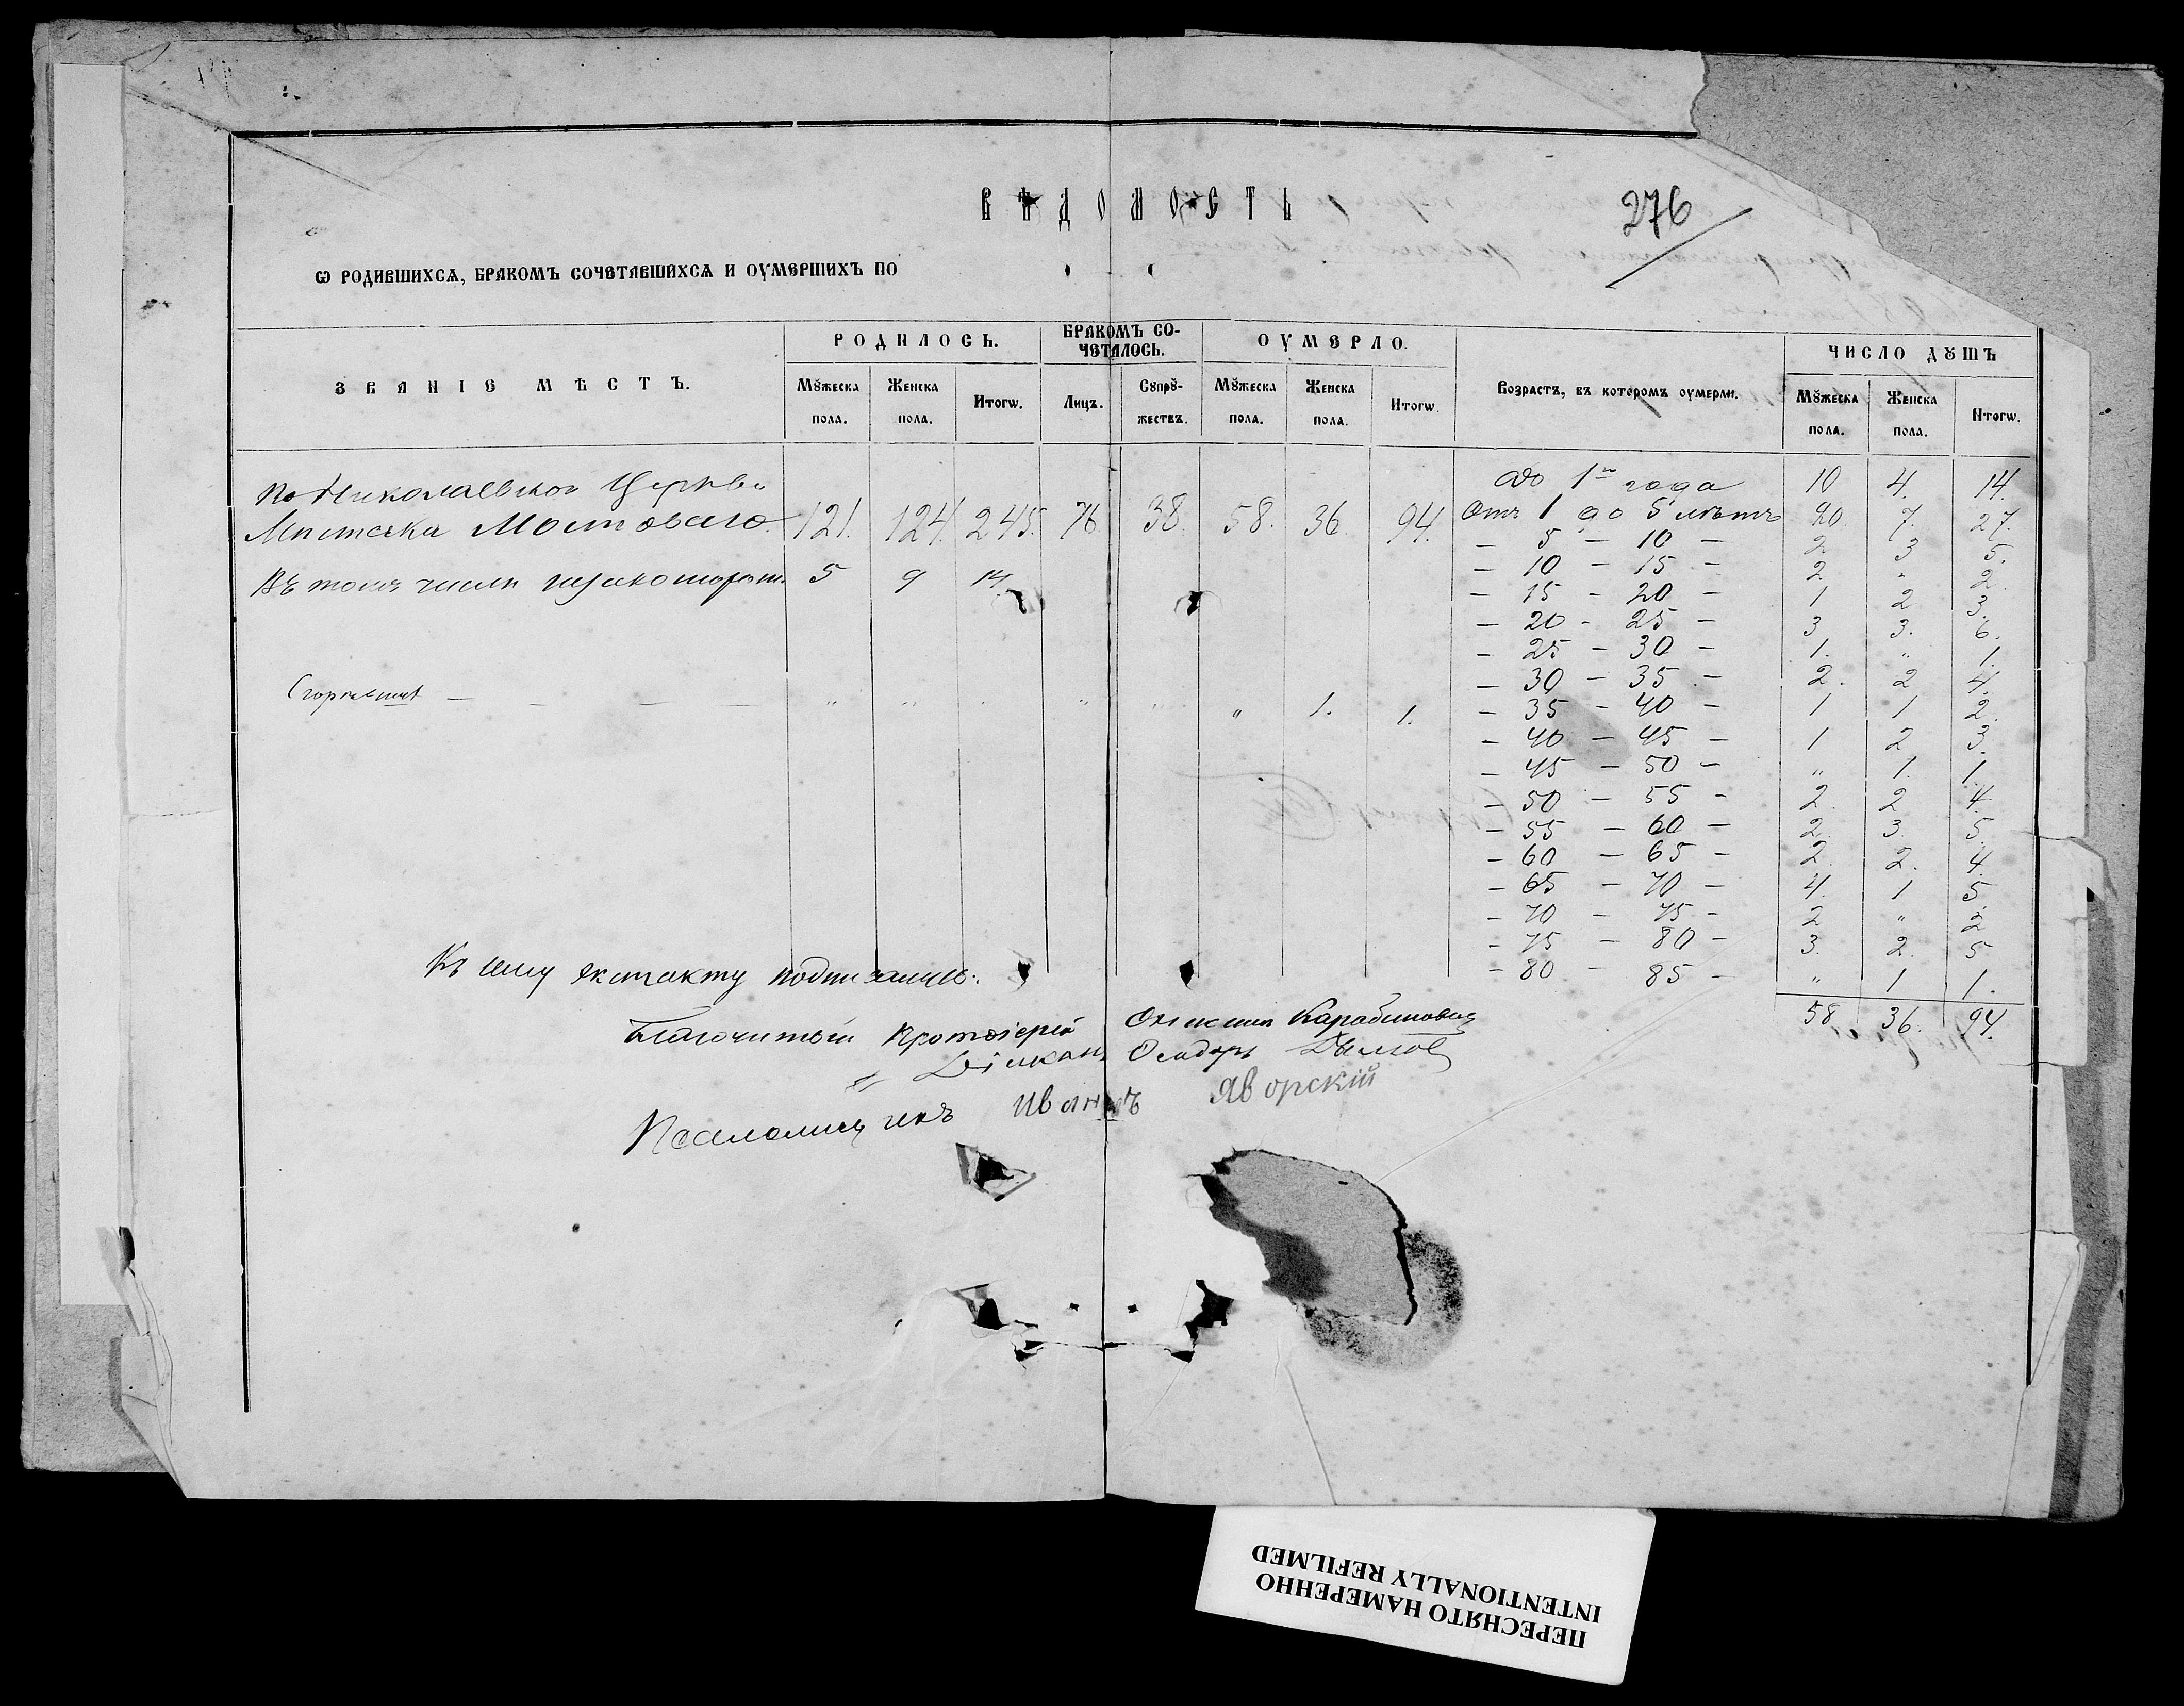 ВѢДОМОСТЬ
276
Ѡ РОДИВШИХСѦ, БРАКОМЪ СОЧЕТАВШИХСѦ И ОУМЕРШИХЪ ПО
ЗВАНІЕ МѢСТЪ. РОДИЛОСЬ. БРАКОМЪ СО-ЧЕТАЛОСЬ. ОУМЕРЛО. Возрастъ, въ которомъ оумерли. ЧИСЛО ДꙊШЪ
Мꙋжеска пола. Женска пола. Итогѡ. Лицъ. Сꙋпрꙋ-жествъ. Мꙋжеска пола. Женска пола. Итогѡ. Мꙋжеска пола. Женска пола. Итогѡ.
По Николаевской Церкви до 1го года 10 4. 14.
Мѣстечка Мостоваго. 121. 124. 245. 76 38. 58. 36. 94. Отъ 1 до 5 лѣтъ 20 7. 27.
— 5 — 10 — 2 3 5.
Въ томъ числѣ 5 9 14. — 10 — 15 — 2 " 2.
— 15 — 20 — 1 2 3.
— 20 - 25 — 3 3. 6.
— 25 — 30 — 1. " 1.
Сгорѣвшихъ — — — — " " " " " " 1. 1. — 30 — 35 — 2. 2 4.
— 35 — 40 — 1 1 2.
— 40 — 45 — 1 2 3.
— 45 — 50 — " 1. 1.
— 50 — 55 — 2. 2 4.
— 55 — 60 — 2. 3. 5.
— 60 — 65 — 2. 2. 4.
— 65 — 70 — 4. 1 5.
— 70 — 75 — 2 " 2
— 75 — 80 — 3. 2. 5
— 80 — 85 — " 1 1.
58 36. 94.
Къ сему экстракту подписались:
Благочинный Протоіерей Карабиновичъ
Діяконъ
Псаломщикъ Иванъ Яворскій
ПЕРЕСНЯТО НАМЕРЕННО
INTENTIONALLY REFILMED